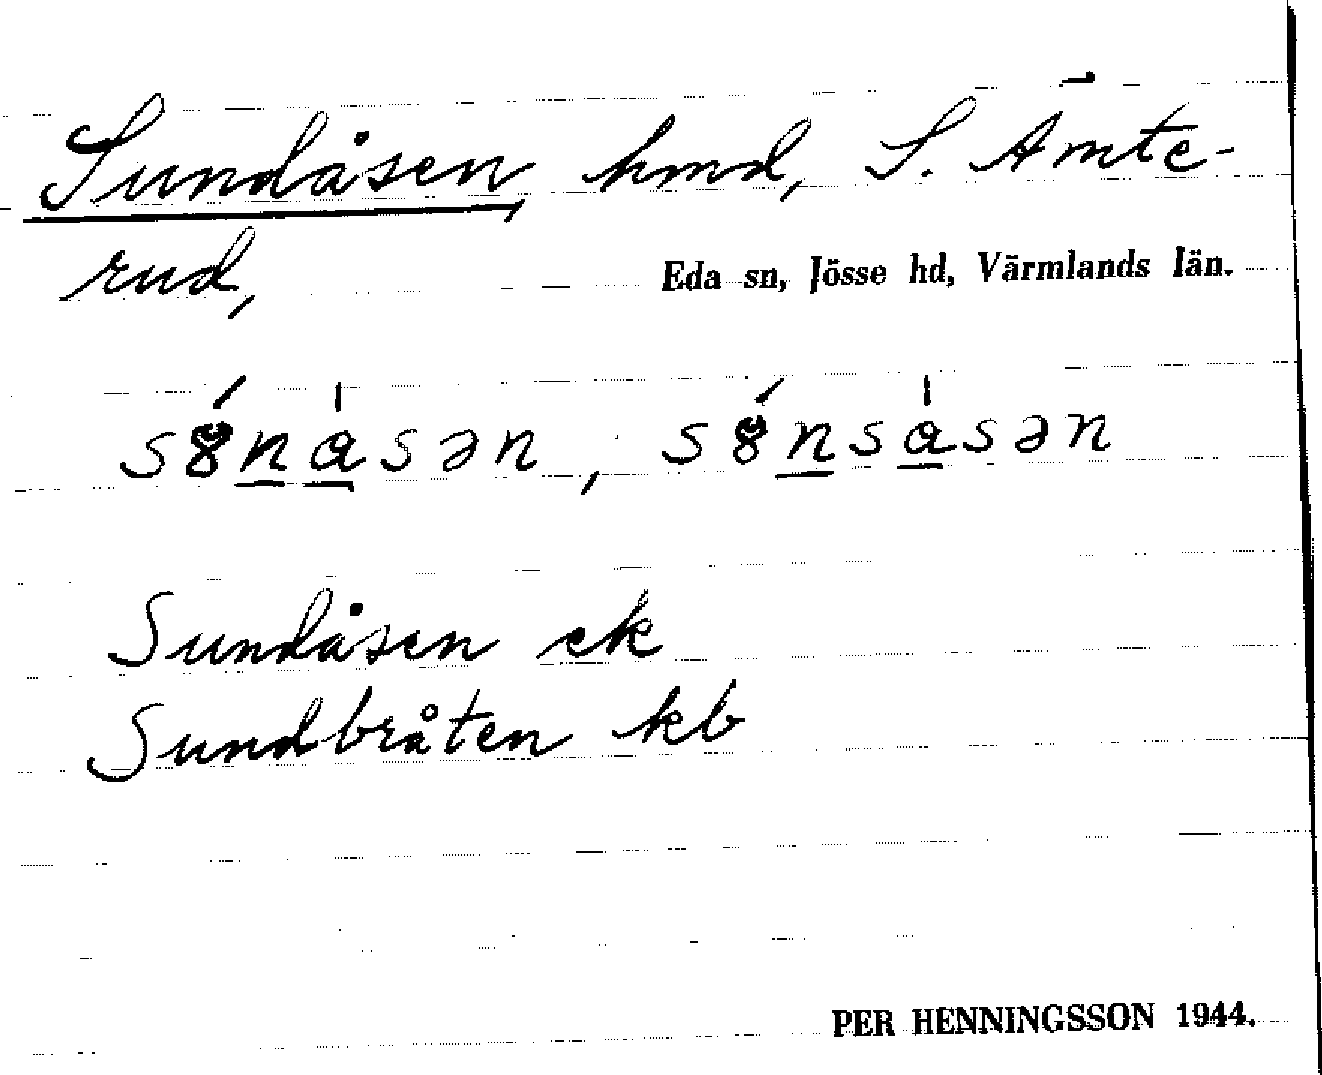 Sundåsen, hmd, S. Ämte-
rud,
Eda sn, Jösse hd, Värmlands län.
Sundåsen ek
Sundbråten kb
PER HENNINGSSON 1944.